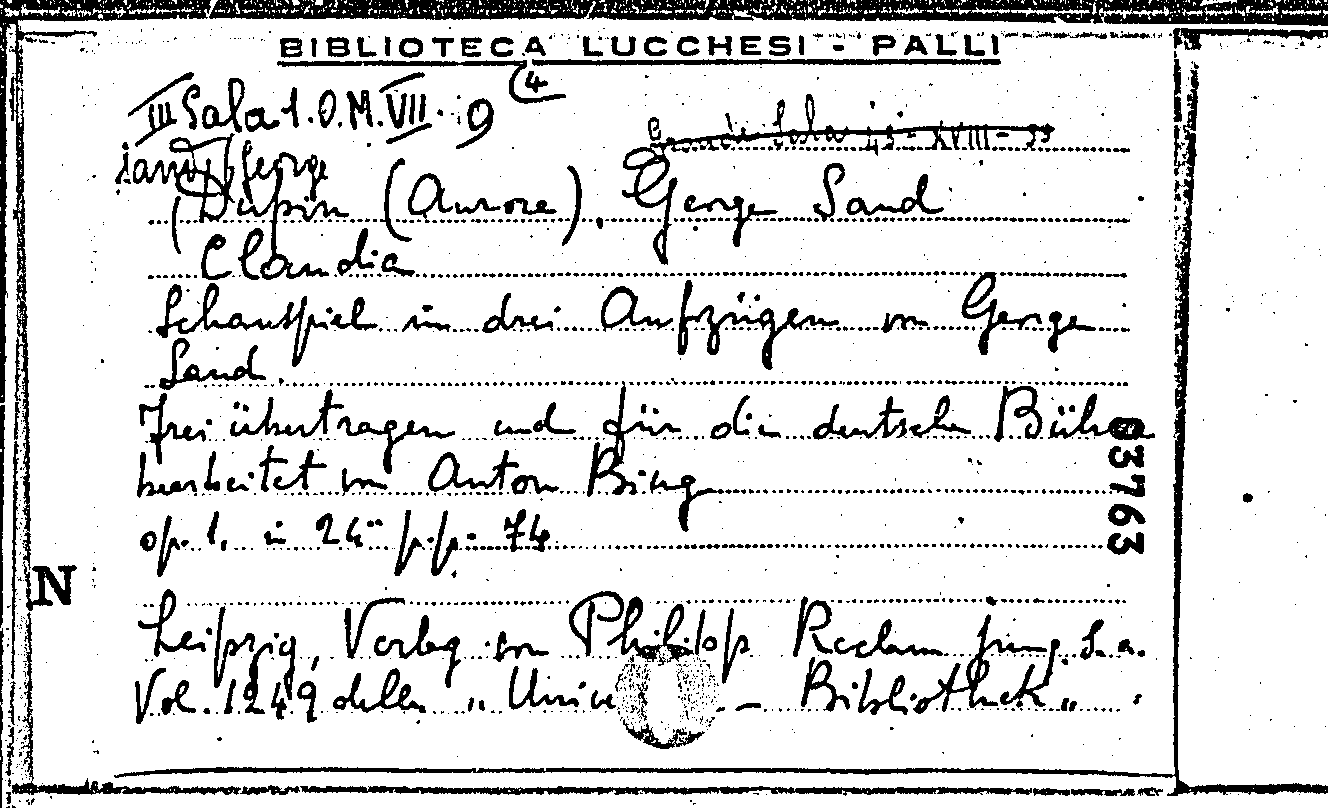 BIBLIOTECA LUCCHESI - PALLI
III Sala 1.O.M.VII. 9 (4
Grande Sala 43-XVIII-33
Sand, George
(Dupin (Aurore). George Sand
Claudia
Schauspiel in drei Aufzügen von George
Sand.
Frei übertragen und für die deutsche Bühne
bearbeitet von Anton Bing
op. 1. in 24° p.p. 74
03763
N
Leipzig, Verlag von Philipp Reclam jung. S.a.
Vol. 1249 della „ - Bibliothek„